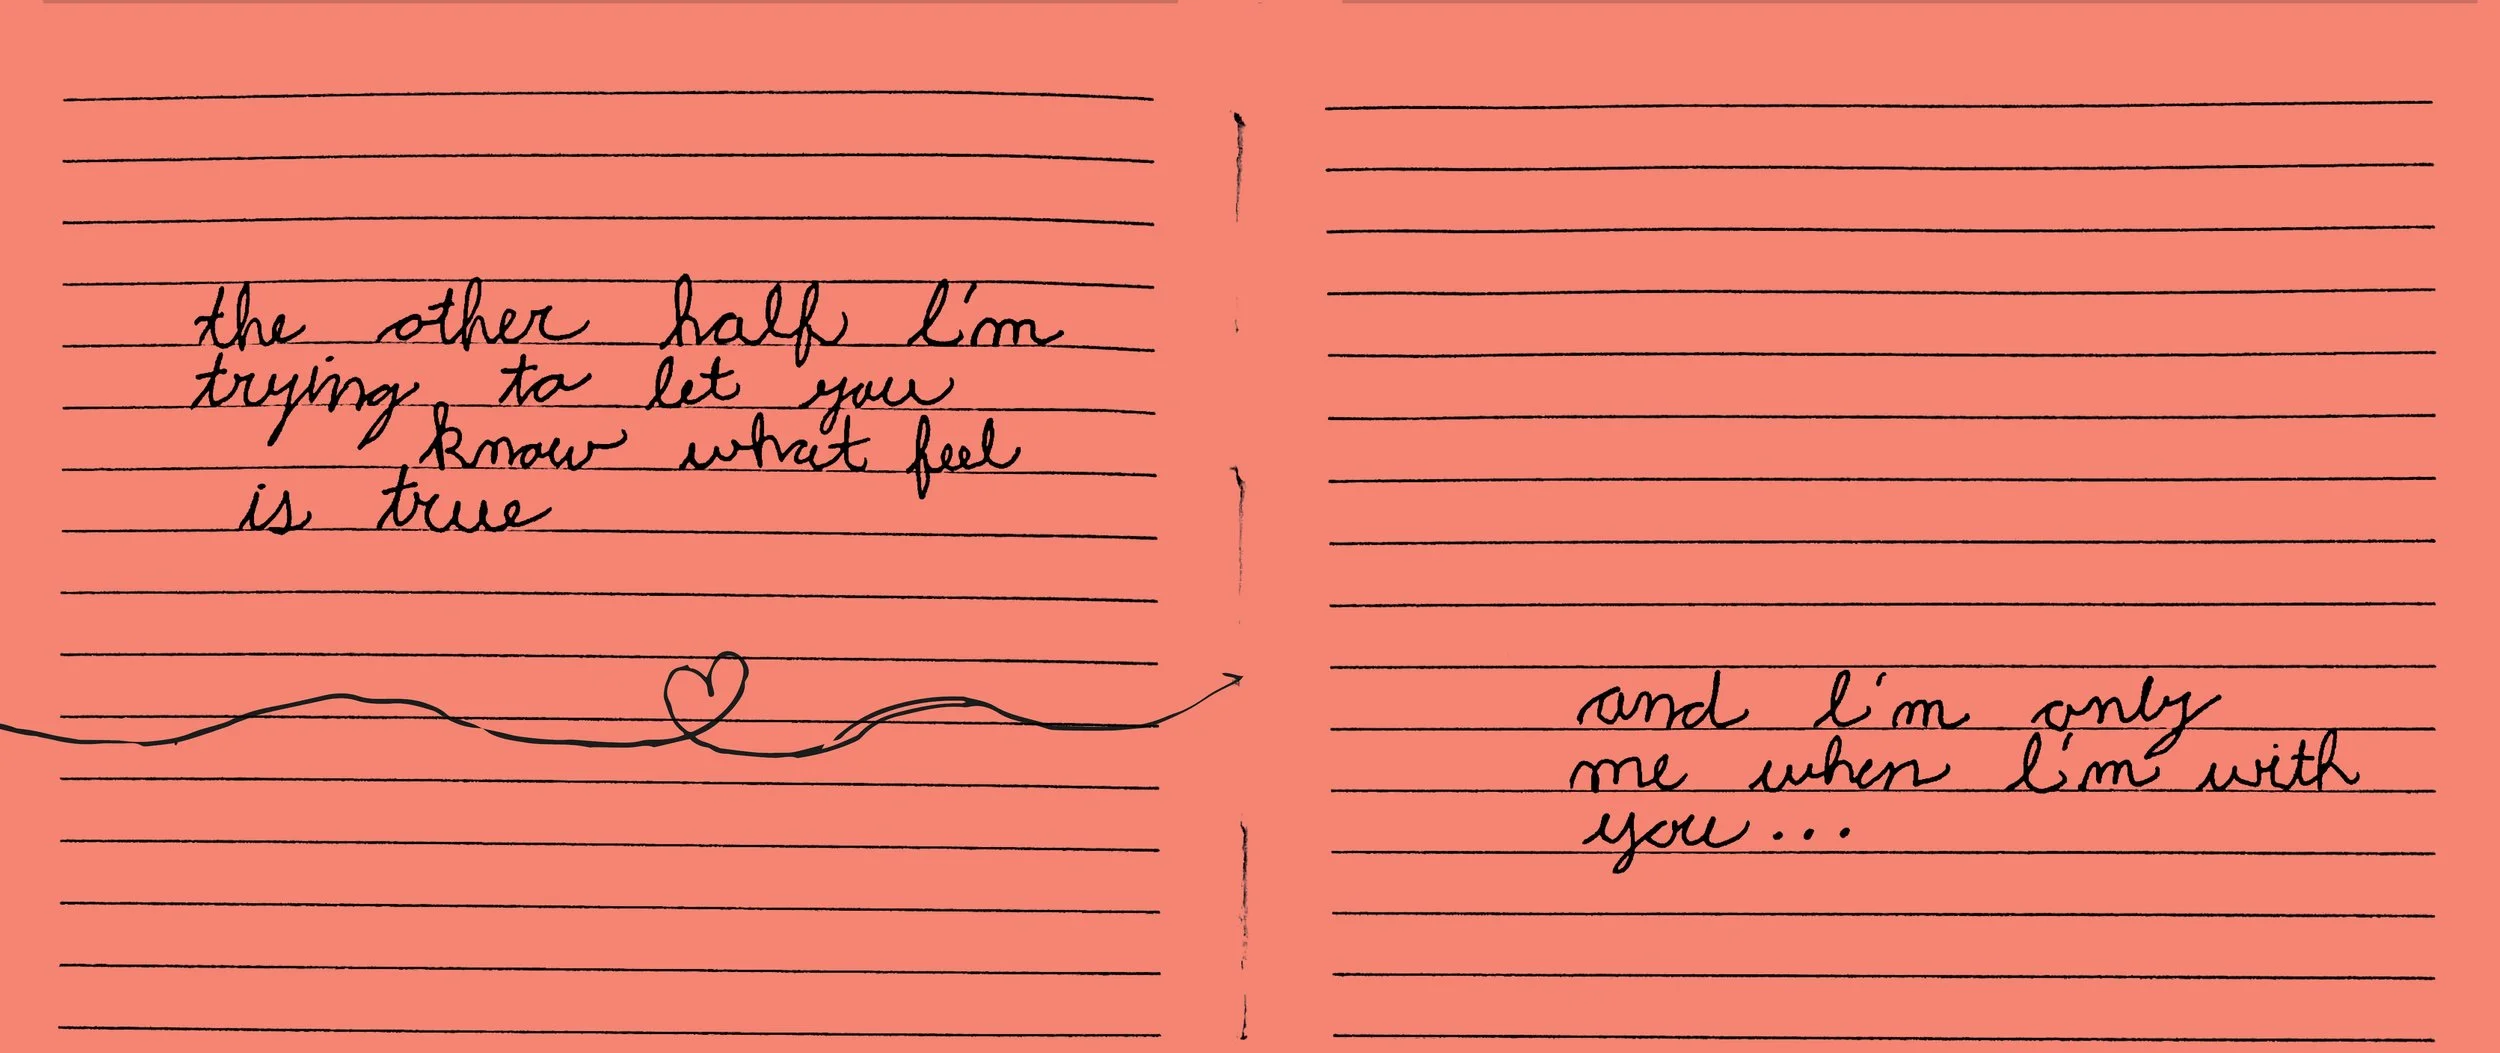 the other half I'm
trying to let you
know what feel
is true
and I'm only
me when I'm with
you...